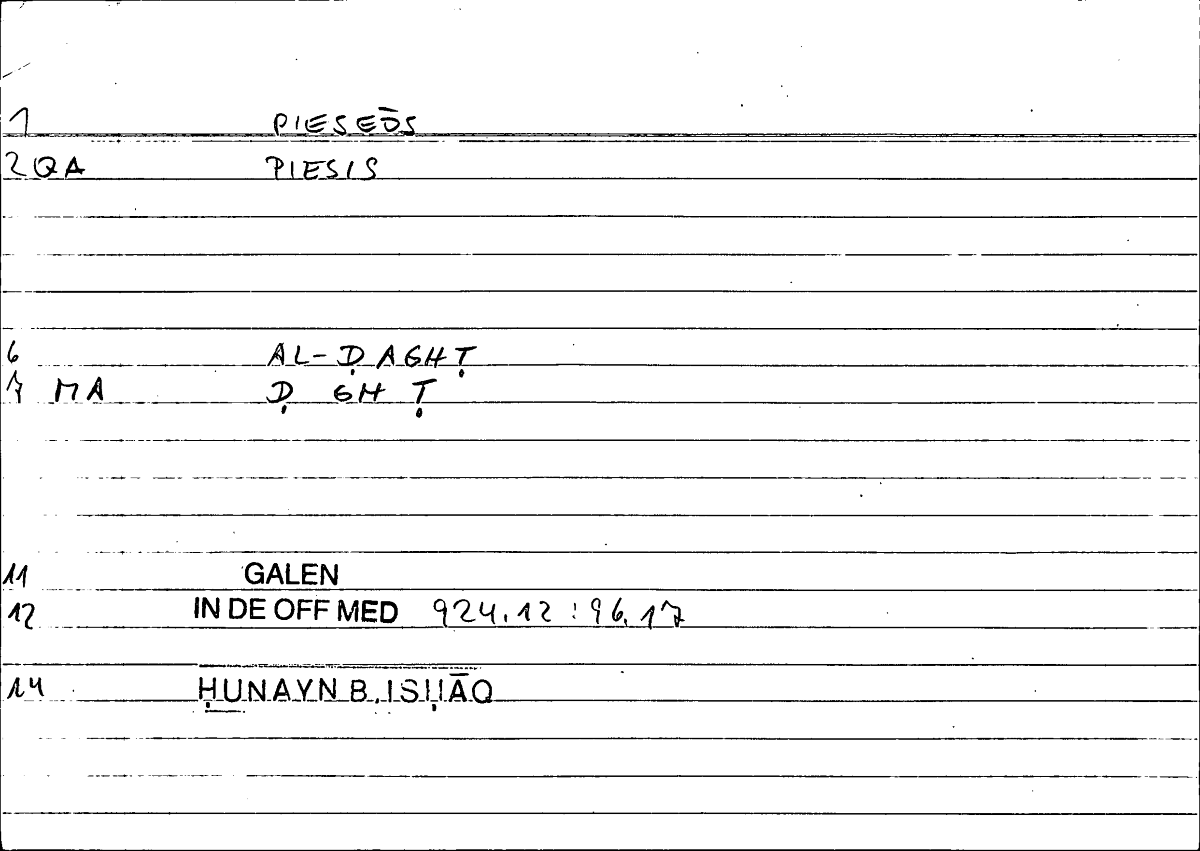 1 PIESEŌS
2 QA PIESIS
6 AL-ḌAGHṬ
7 MA Ḍ GH Ṭ
11 GALEN
12 IN DE OFF MED 924.12 : 96.17
14 ḤUNAYN B. ISḤĀQ